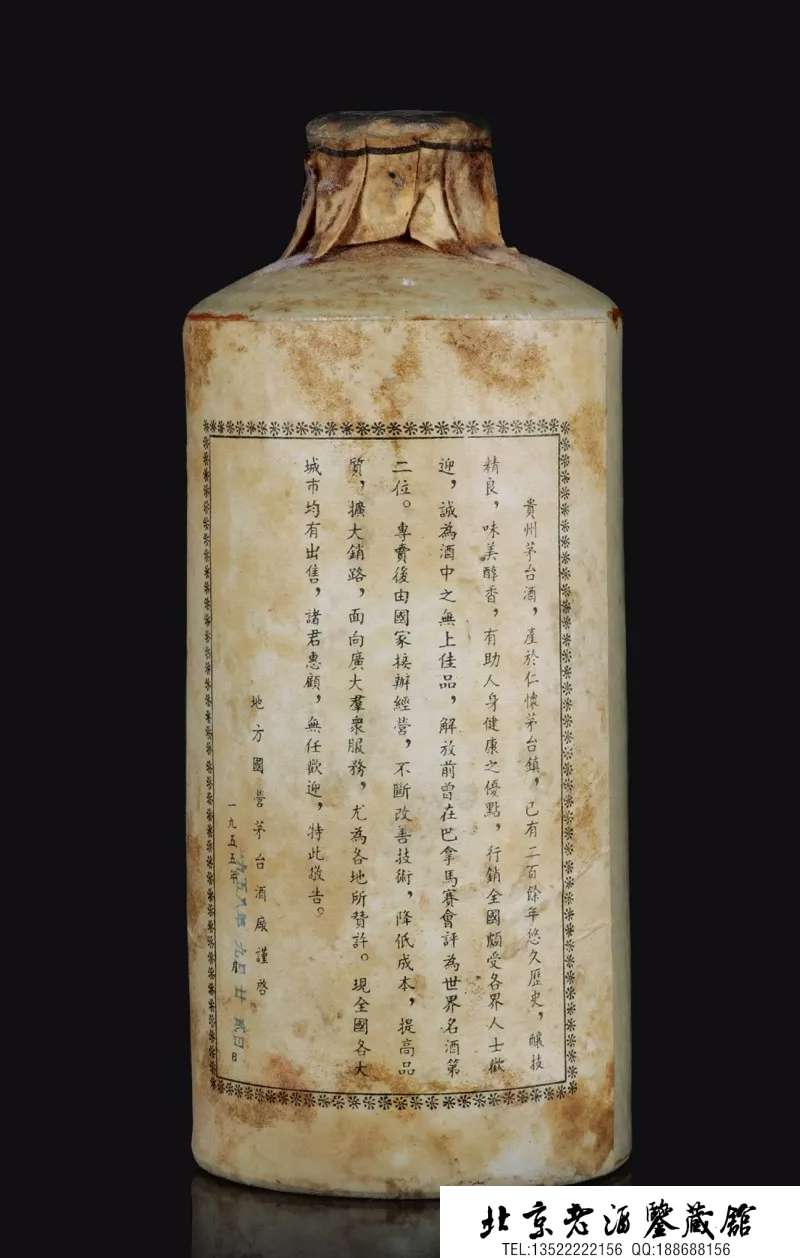 貴州茅台酒，產於仁懷茅台鎮，已有二百餘年悠久歷史，釀技
精良，味美醇香，有助人身健康之優點，行銷全國頗受各界人士歡
迎，誠為酒中之無上佳品，解放前曾在巴拿馬賽會評為世界名酒第
二位。專賣後由國家接辦經營，不斷改善技術，降低成本，提高品
質，擴大銷路，面向廣大羣衆服務，尤為各地所贊許。現全國各大
城市均有出售，諸君惠顧，無任歡迎，特此敬告。
地方國營茅台酒廠謹啓
一九五五年
九五八年九月廿貳日
北京老酒鑒藏館
TEL:13522222156 QQ:188688156